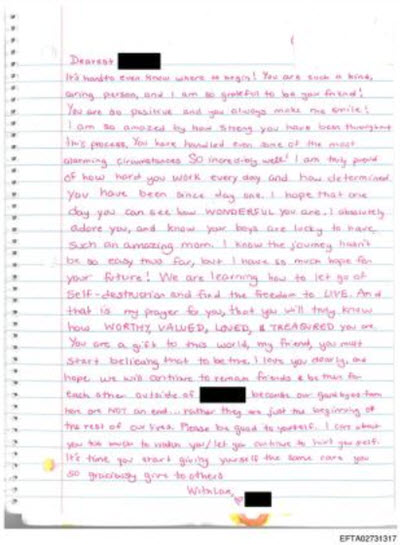 Dearest
It's hard to even know where to begin! You are such a kind,
caring person, and I am so grateful to be your friend!
You are so positive and you always make me smile!
I am so amazed by how strong you have been throughout
this process. You have handled even some of the most
alarming circumstances SO incredibly well! I am truly proud
of how hard you work every day and how determined
you have been since day one. I hope that one
day you can see how WONDERFUL you are. I absolutely
adore you, and know your boys are lucky to have
such an amazing mom. I know the journey hasn't
be so easy thus far, but I have so much hope for
your future! We are learning how to let go of
self-destruction and find the freedom to LIVE. And
that is my prayer for you, that you will truly know
how WORTHY, VALUED, LOVED, & TREASURED you are.
You are a gift to this world, my friend, you must
start believing that to be true. I love you dearly, and
hope we will continue to remain friends & be there for
each other outside of because our goodbyes from
here are NOT an end... rather they are just the beginning of
the rest of our lives. Please be good to yourself. I care about
you too much to watch you/let you continue to hurt yourself.
It's time you start giving yourself the same care you
so graciously give to others
With Love,
EFTA02731317